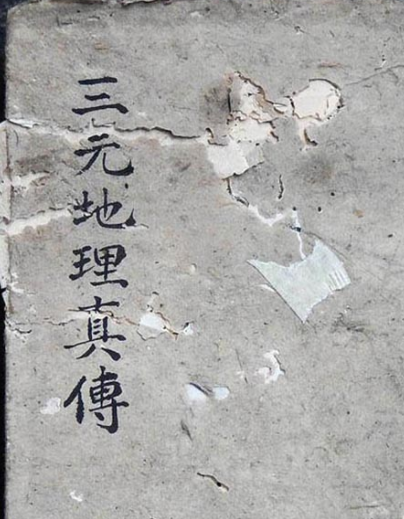 三元地理真傳